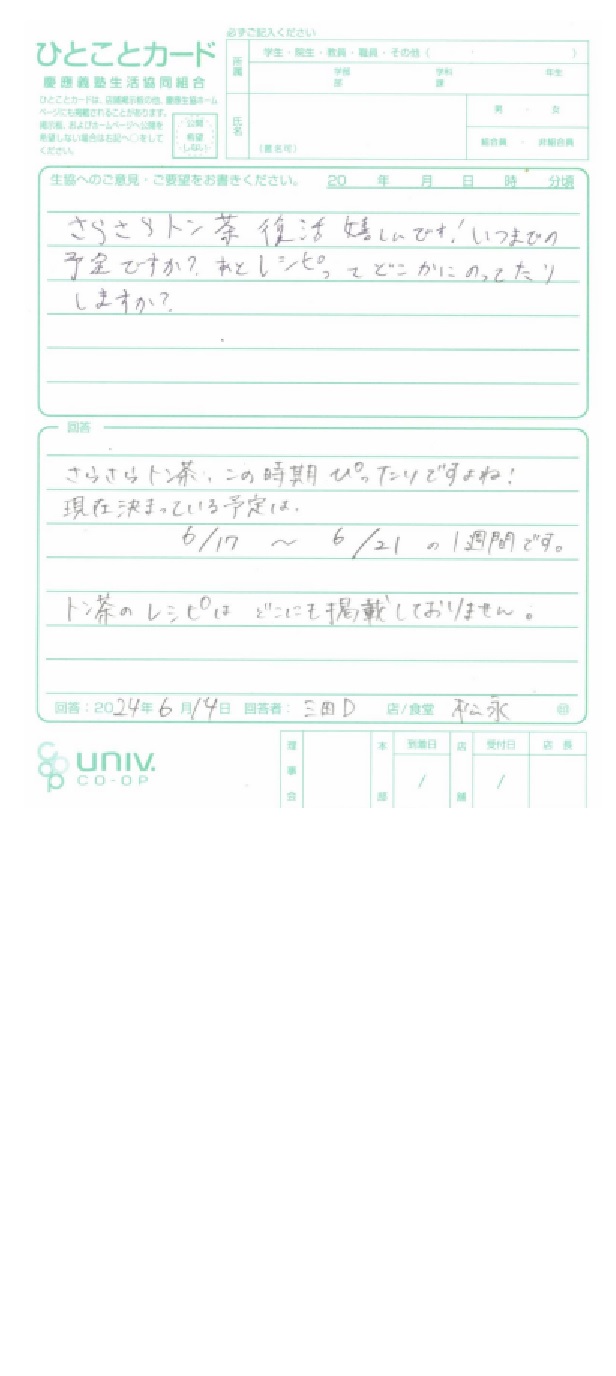 必ずご記入ください
ひとことカード
慶應義塾生活協同組合
ひとことカードは、店頭掲示板の他、慶應生協ホーム
ページにも掲載されることがあります。
掲示板、およびホームページへ公開を
希望しない場合は右記へ○をして
ください。
公開
希望
しない
所属
学生・院生・教員・職員・その他（　　）
学部 学科 年生
部 課
氏名
（匿名可）
男 ・ 女
組合員 ・ 非組合員
生協へのご意見・ご要望をお書きください。 20 年 月 日 時 分頃
さらさらトン茶 復活 嬉しいです! いつまでの
予定ですか? あとレシピってどこかにのってたり
しますか?
回答
さらさらトン茶、この時期ぴったりですよね!
現在決まっている予定は、
6/17 〜 6/21 の1週間です。
トン茶のレシピは どこにも掲載しておりません。
回答：2024年6月14日 回答者： 三田D 店/食堂 松永 ㊞
UNIV.
CO-OP
理事会
本部
到着日
/
店舗
受付日
/
店長